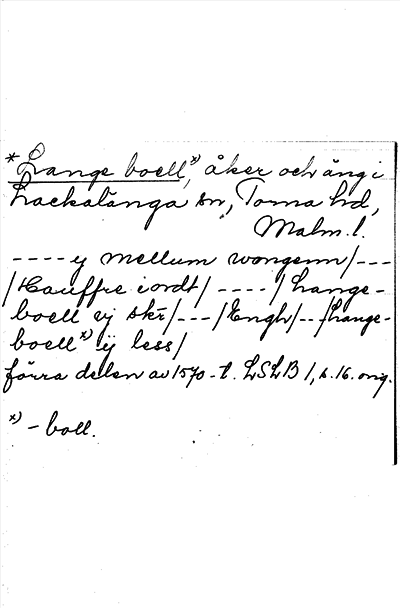 * Lange boell,*) åker och äng i
Lackalänga sn, Torna hd,
Malm. l.
---- y mellum wongenn/---
/Hauffre iordt/ ----/ Lange-
boell vj skr/---/Engh/--/Lange-
boell*) ij less/
förra delen av 1570-t. LSLB 1, s. 16. orig.
*) -boll.